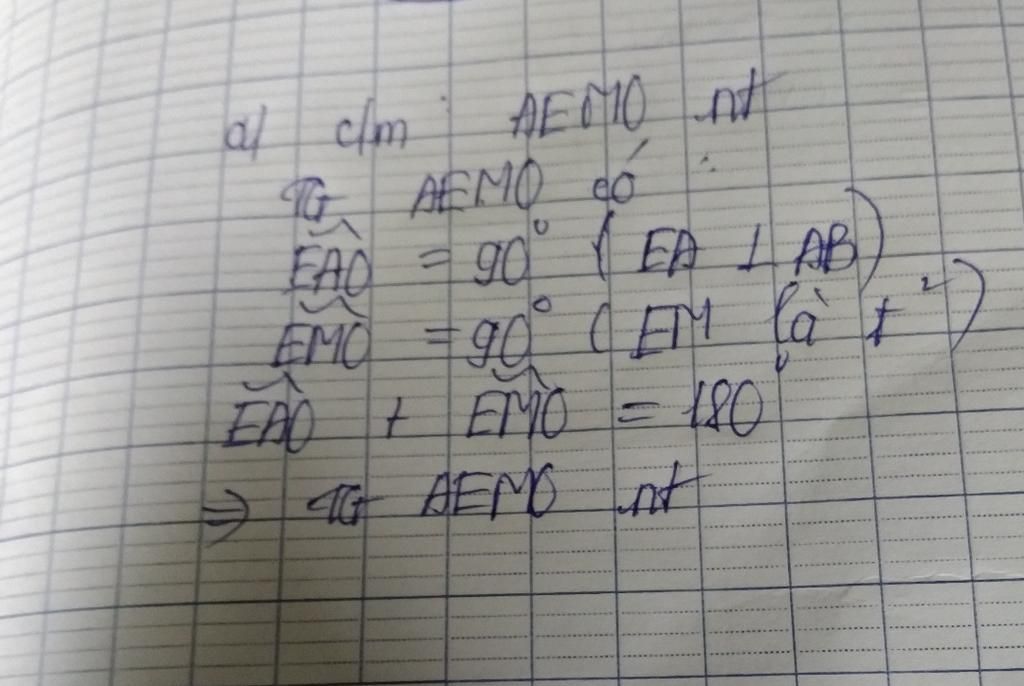 a/ c/m : AEMO nt
TG AEMO có :
EAO = 90° ( EA ⊥ AB )
EMO = 90° ( EM là t² )
EAO + EMO = 180
⇒ TG AEMO nt